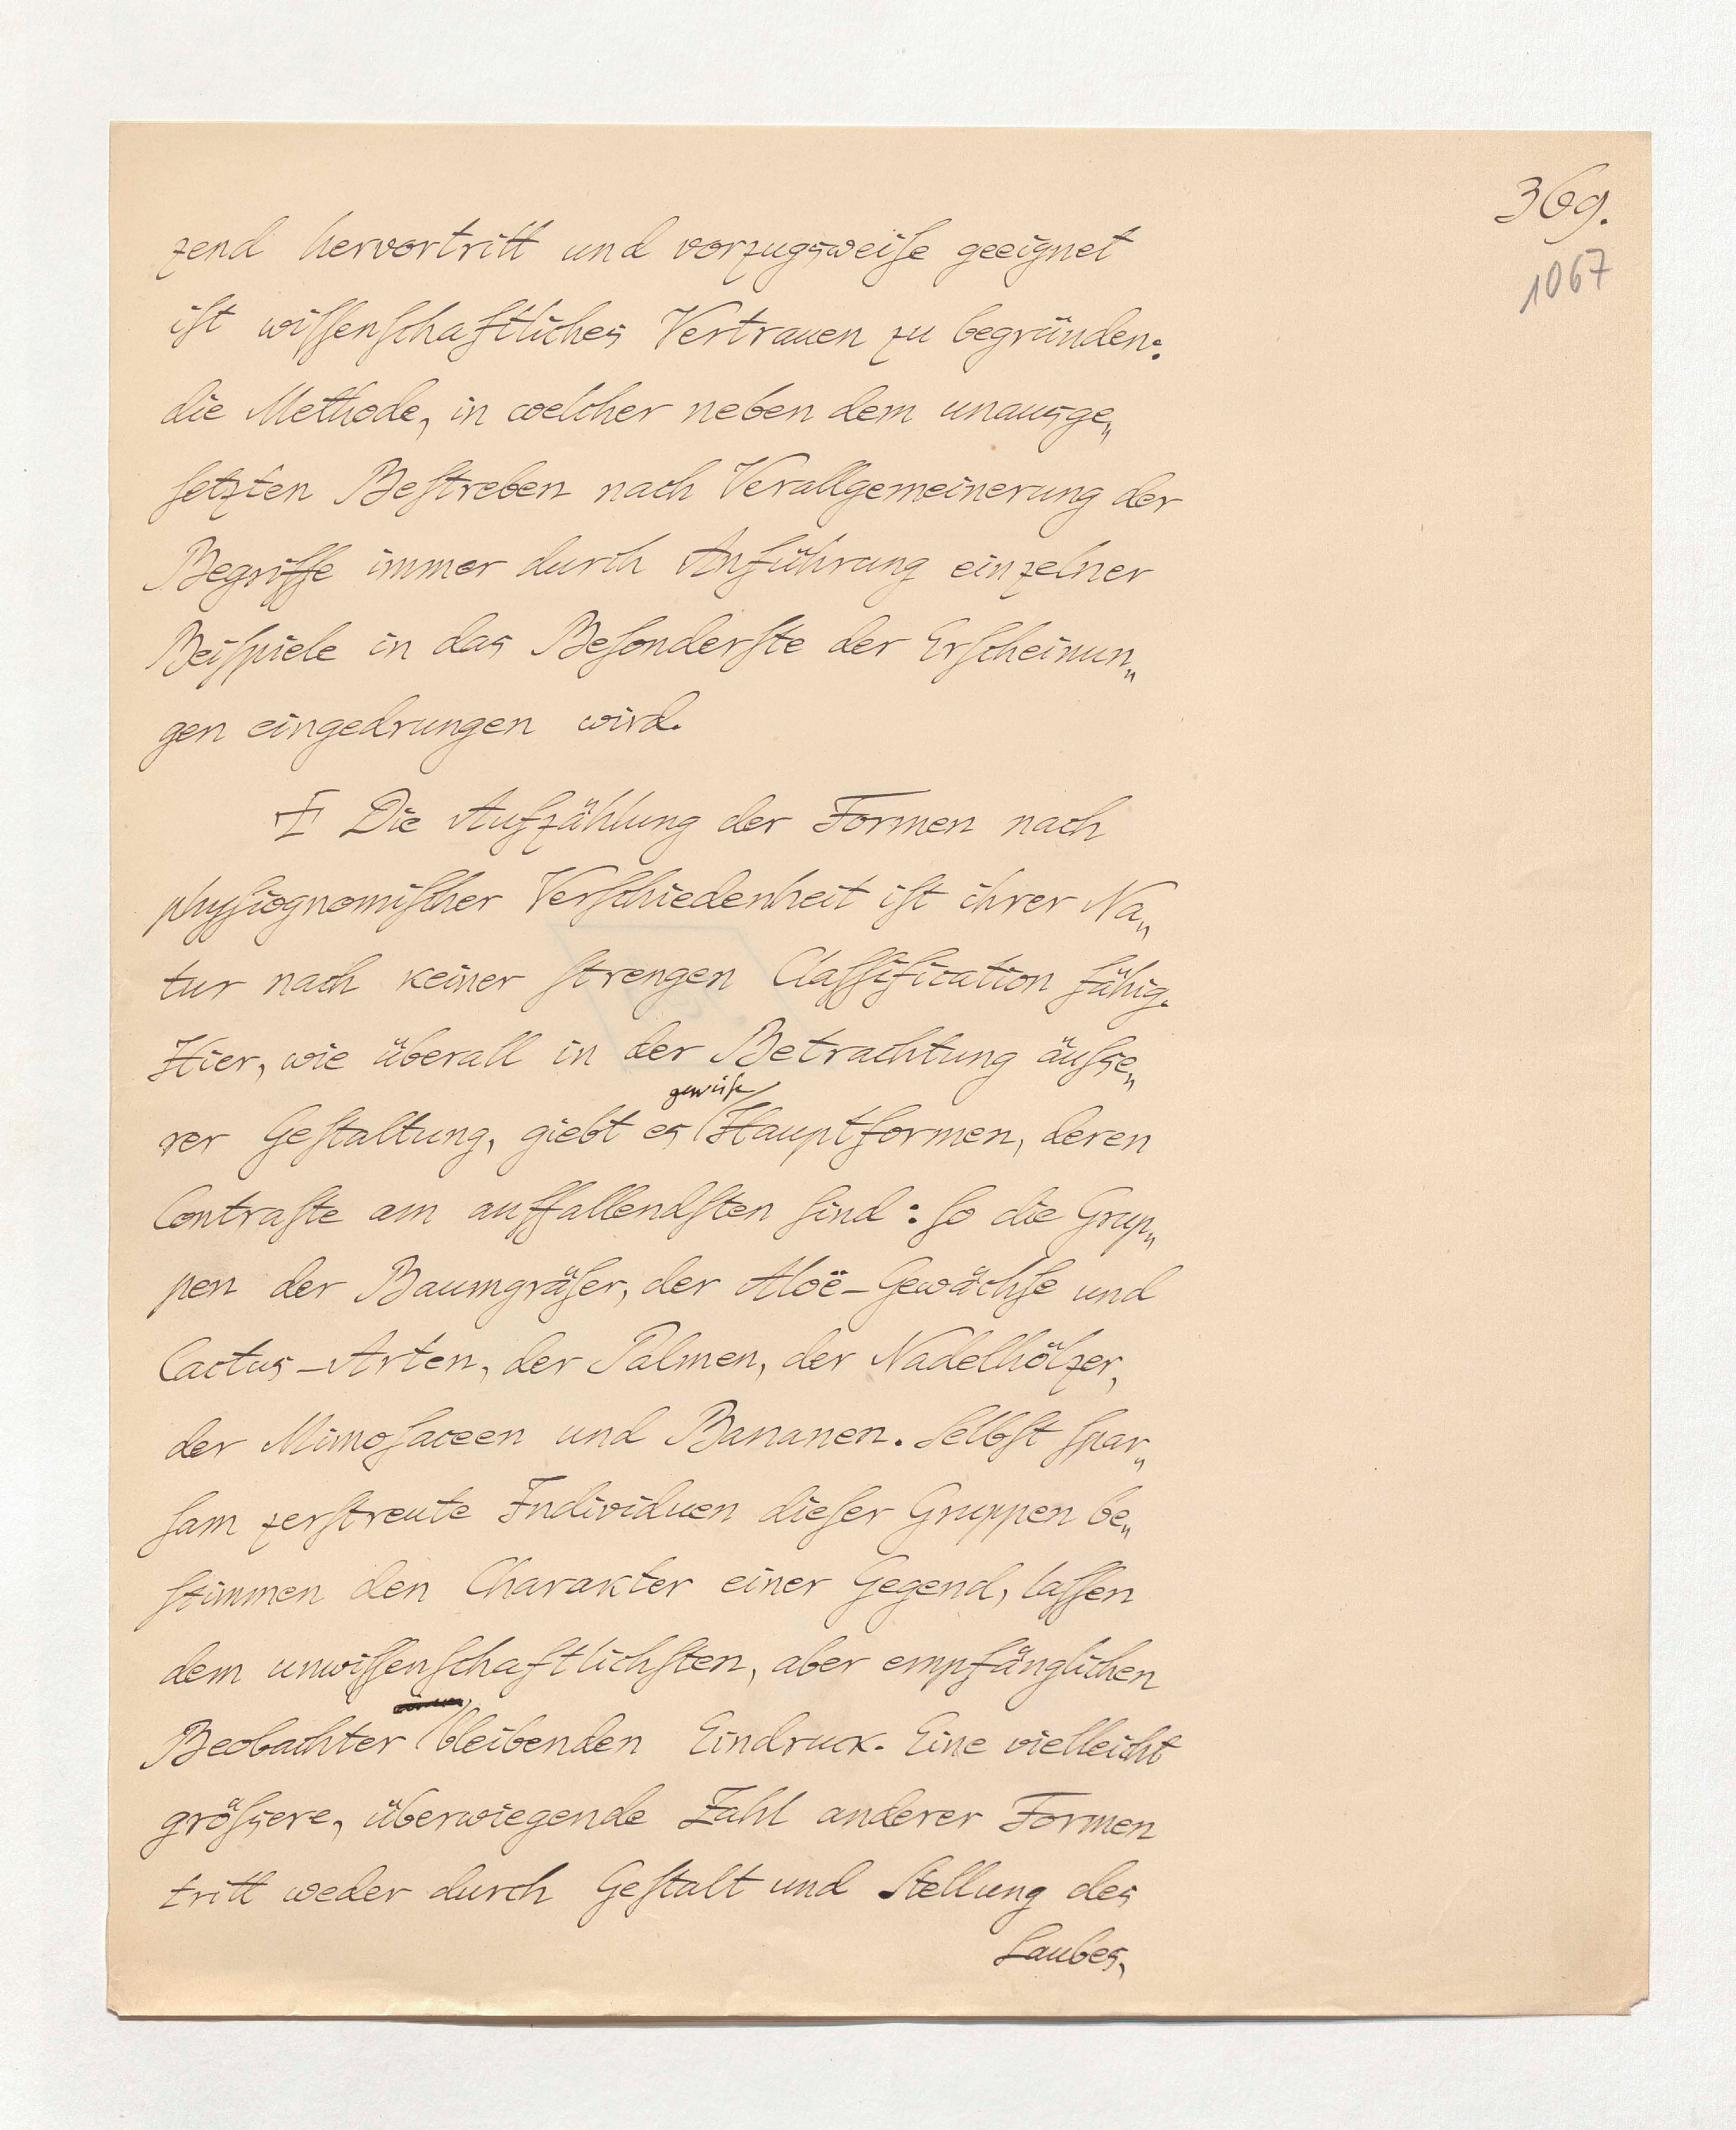 369.
1067
zend hervortritt und vorzugsweiſe geeignet
iſt wiſſenſchaftliches Vertrauen zu begründen:
die Methode, in welcher neben dem unausge„
ſetzten Beſtreben nach Verallgemeinerung der
Begriffe immer durch Anführung einzelner
Beiſpiele in das Beſonderſte der Erſcheinun„
gen eingedrungen wird.
Die Aufzählung der Formen nach
phyſiognomiſcher Verſchiedenheit iſt ihrer Na„
tur nach keiner ſtrengen Claſſification fähig.
Hier, wie überall in der Betrachtung äuſse„
gewiſſe
rer Geſtaltung, giebt es Hauptformen, deren
Contraſte am auffallendſten ſind: ſo die Grup„
pen der Baumgräſer, der Aloë-Gewächſe und
Cactus-Arten, der Palmen, der Nadelhölzer,
der Mimoſaceen und Bananen. Selbſt ſpar„
ſam zerſtreute Individuen dieſer Gruppen be„
ſtimmen den Charakter einer Gegend, laſſen
dem unwiſſenſchaftlichſten, aber empfänglichen
Beobachter bleibenden Eindruck. Eine vielleicht
gröſsere, überwiegende Zahl anderer Formen
tritt weder durch Geſtalt und Stellung des
Laubes,